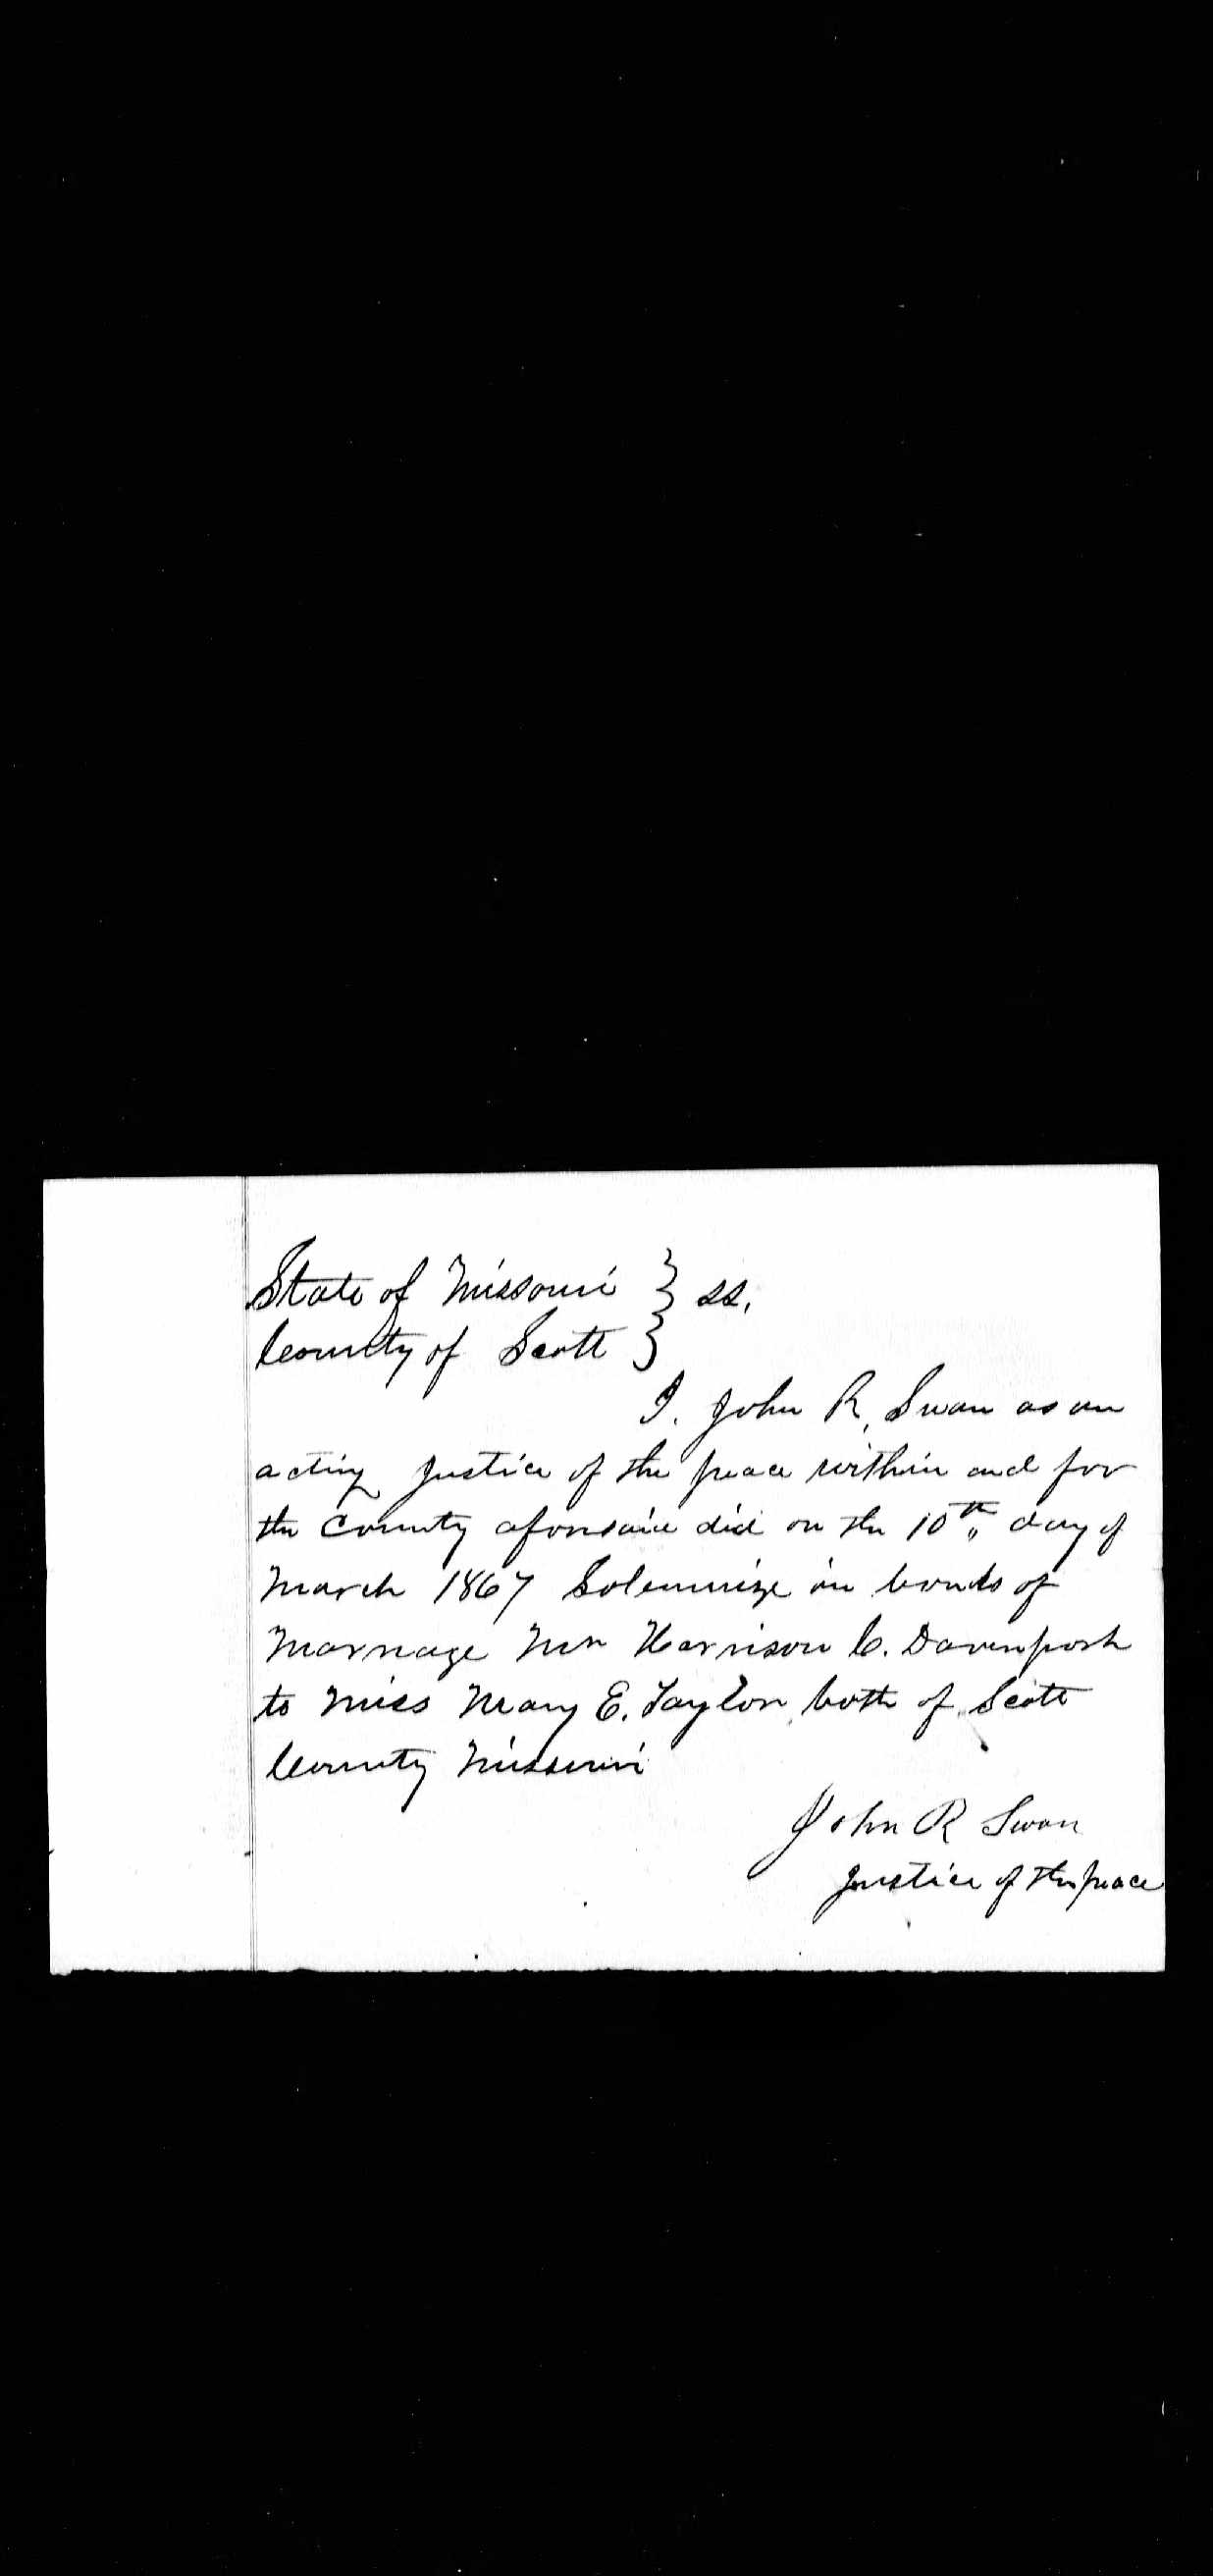 State of Missouri } ss.
County of Scott }
I. John R. Swan as an
acting Justice of the peace within and for
the County aforesaid did on the 10th day of
March 1867 Solemnize in bonds of
Marriage Mr Harrison C. Davenport
to Miss Mary E. Taylor both of Scott
County Missouri
John R Swan
Justice of the peace